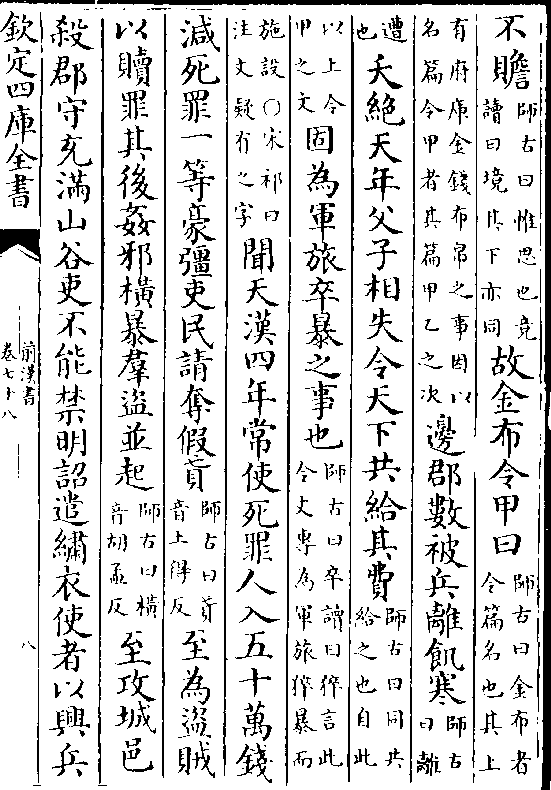 不贍師古曰惟思也竟讀曰境其下亦同故金布令甲曰師古曰金布者令篇名也其上
有府庫金錢布帛之事因以名篇令甲者其篇甲乙之次邊郡數被兵離飢寒師古曰離
遭也夭絶天年父子相失令天下共給其費師古曰同共給之也自此
以上令甲之文固為軍旅卒暴之事也師古曰卒讀曰猝言此令文專為軍旅猝暴而
施設〇宋祁曰注文疑有之字聞天漢四年常使死罪人入五十萬錢
減死罪一等豪彊吏民請奪假貣師古曰貣音上得反至為盜賊
以贖罪其後姦邪橫暴羣盜並起師古曰橫音胡孟反至攻城邑
殺郡守充滿山谷吏不能禁明詔遣繡衣使者以興兵
欽定四庫全書
前漢書
卷七十八
八